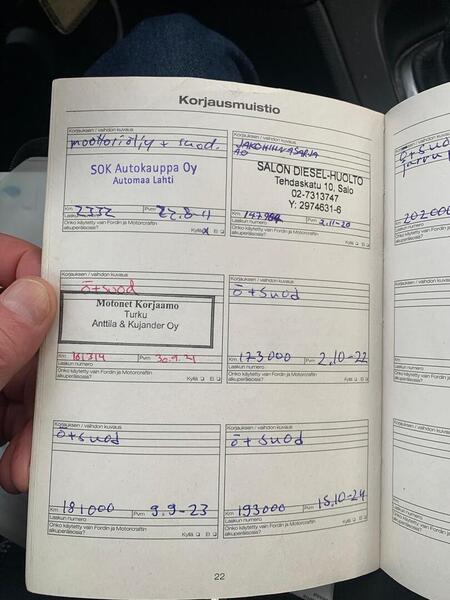 Korjausmuistio
Korjauksen / vaihdon kuvaus
moottoriöljy + suod.
SOK Autokauppa Oy
Automaa Lahti
Km 2332 Pvm 22.8-11
Laskun numero
Onko käytetty vain Fordin ja Motorcraftin
alkuperäisosia? Kyllä Ei
Korjauksen / vaihdon kuvaus
JAKOHIHNASARJA
SALON DIESEL-HUOLTO
Tehdaskatu 10, Salo
02-7313747
Y: 2974631-6
Km Pvm 2.11-20
Laskun numero
Onko käytetty vain Fordin ja Motorcraftin
alkuperäisosia? Kyllä Ei
Korjauksen / vaihdon kuvaus
ö+suod
Motonet Korjaamo
Turku
Anttila & Kujander Oy
Km 161314 Pvm 30.9.21
Laskun numero
Onko käytetty vain Fordin ja Motorcraftin
alkuperäisosia? Kyllä Ei
Korjauksen / vaihdon kuvaus
ö+suod
Km 173000 Pvm 2.10-22
Laskun numero
Onko käytetty vain Fordin ja Motorcraftin
alkuperäisosia? Kyllä Ei
Korjauksen / vaihdon kuvaus
ö+suod
Km 181000 Pvm 9.9-23
Laskun numero
Onko käytetty vain Fordin ja Motorcraftin
alkuperäisosia? Kyllä Ei
Korjauksen / vaihdon kuvaus
ö+suod
Km 193000 Pvm 15.10-24
Laskun numero
Onko käytetty vain Fordin ja Motorcraftin
alkuperäisosia? Kyllä Ei
22
Korjauksen
ö+suo
Km 202000
Laskun nume
Onko käytett
alkuperäisos
Korjauksen
Km
Laskun nu
Onko käyt
alkuperäis